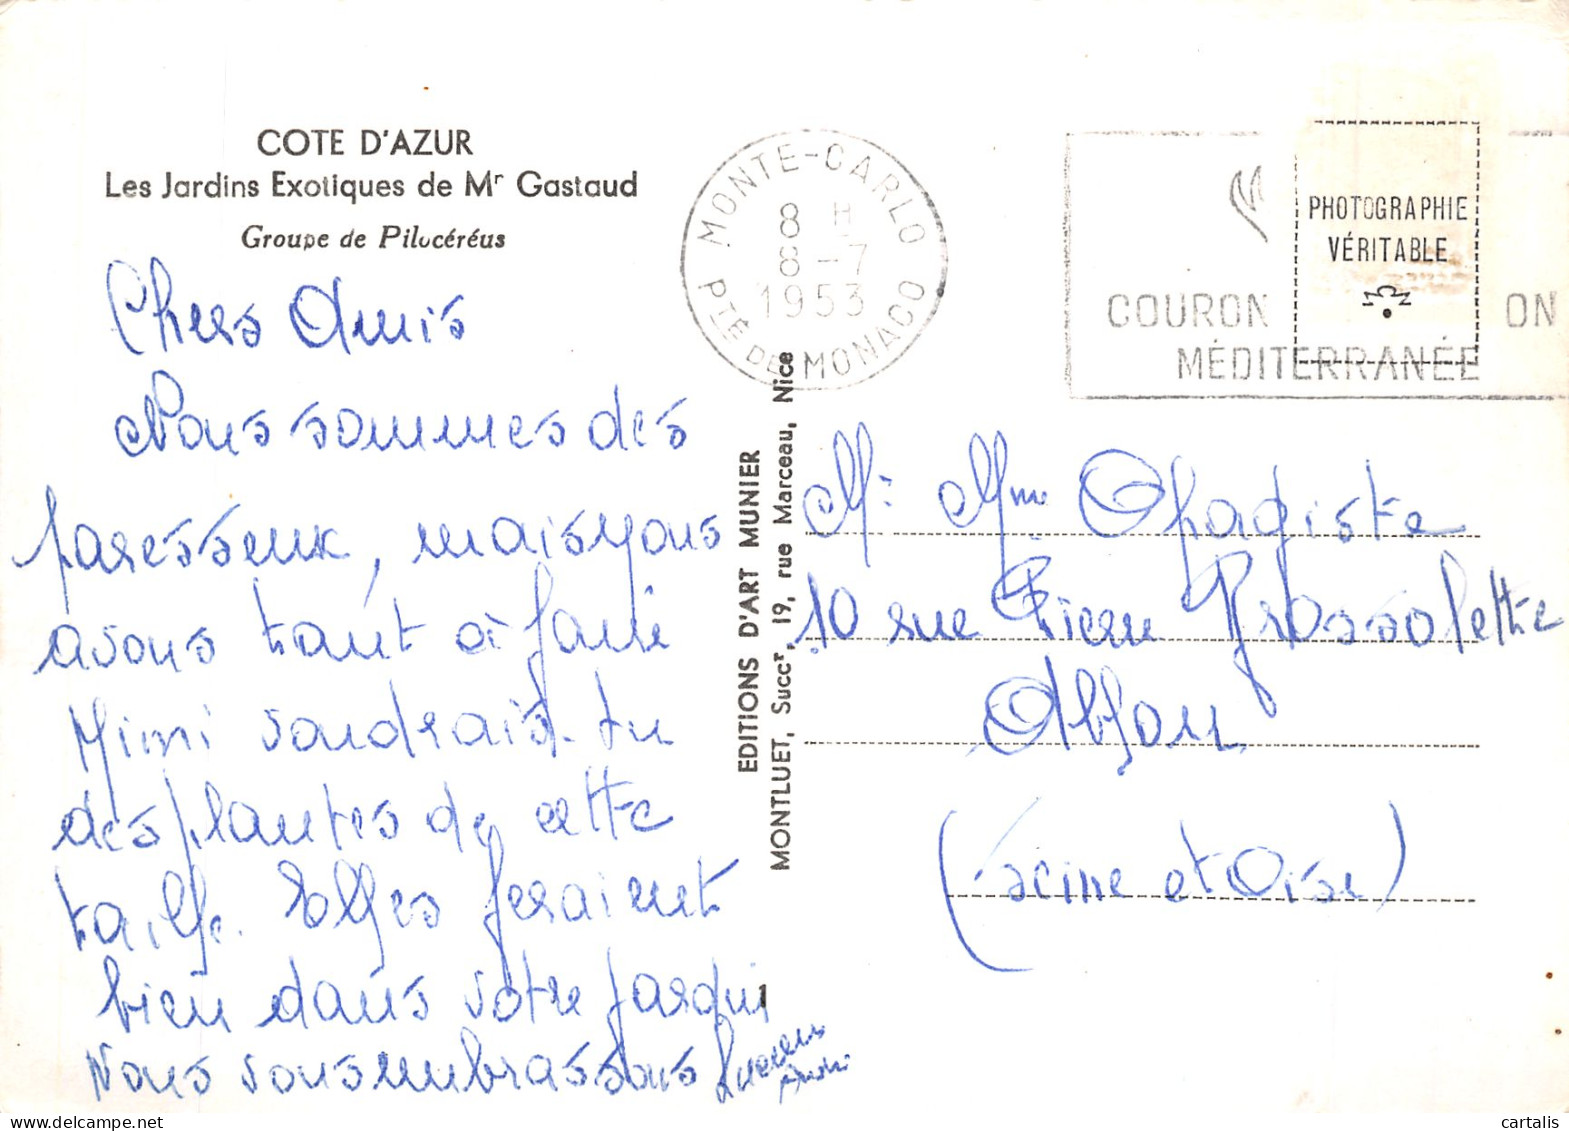 COTE D'AZUR
Les Jardins Exotiques de Mr Gastaud
Groupe de Pilocéréus
Chers Amis
Nous sommes des
paresseux, mais nous
avons tant à faire
Mimi voudrais-tu
des plantes de cette
taille. Elles feraient
bien dans votre jardin
Nous vous embrassons
André
MONTE-CARLO
8 H
8-7
1953
PTÉ DE MONACO
COURON
ON
MÉDITERRANÉE
PHOTOGRAPHIE
VÉRITABLE
EDITIONS D'ART MUNIER
MONTLUET, Succr, 19, rue Marceau, Nice
1
Mr Mme Chagiste
10 rue Pierre Brossolette
Ablon
(Seine et Oise)
cartalis